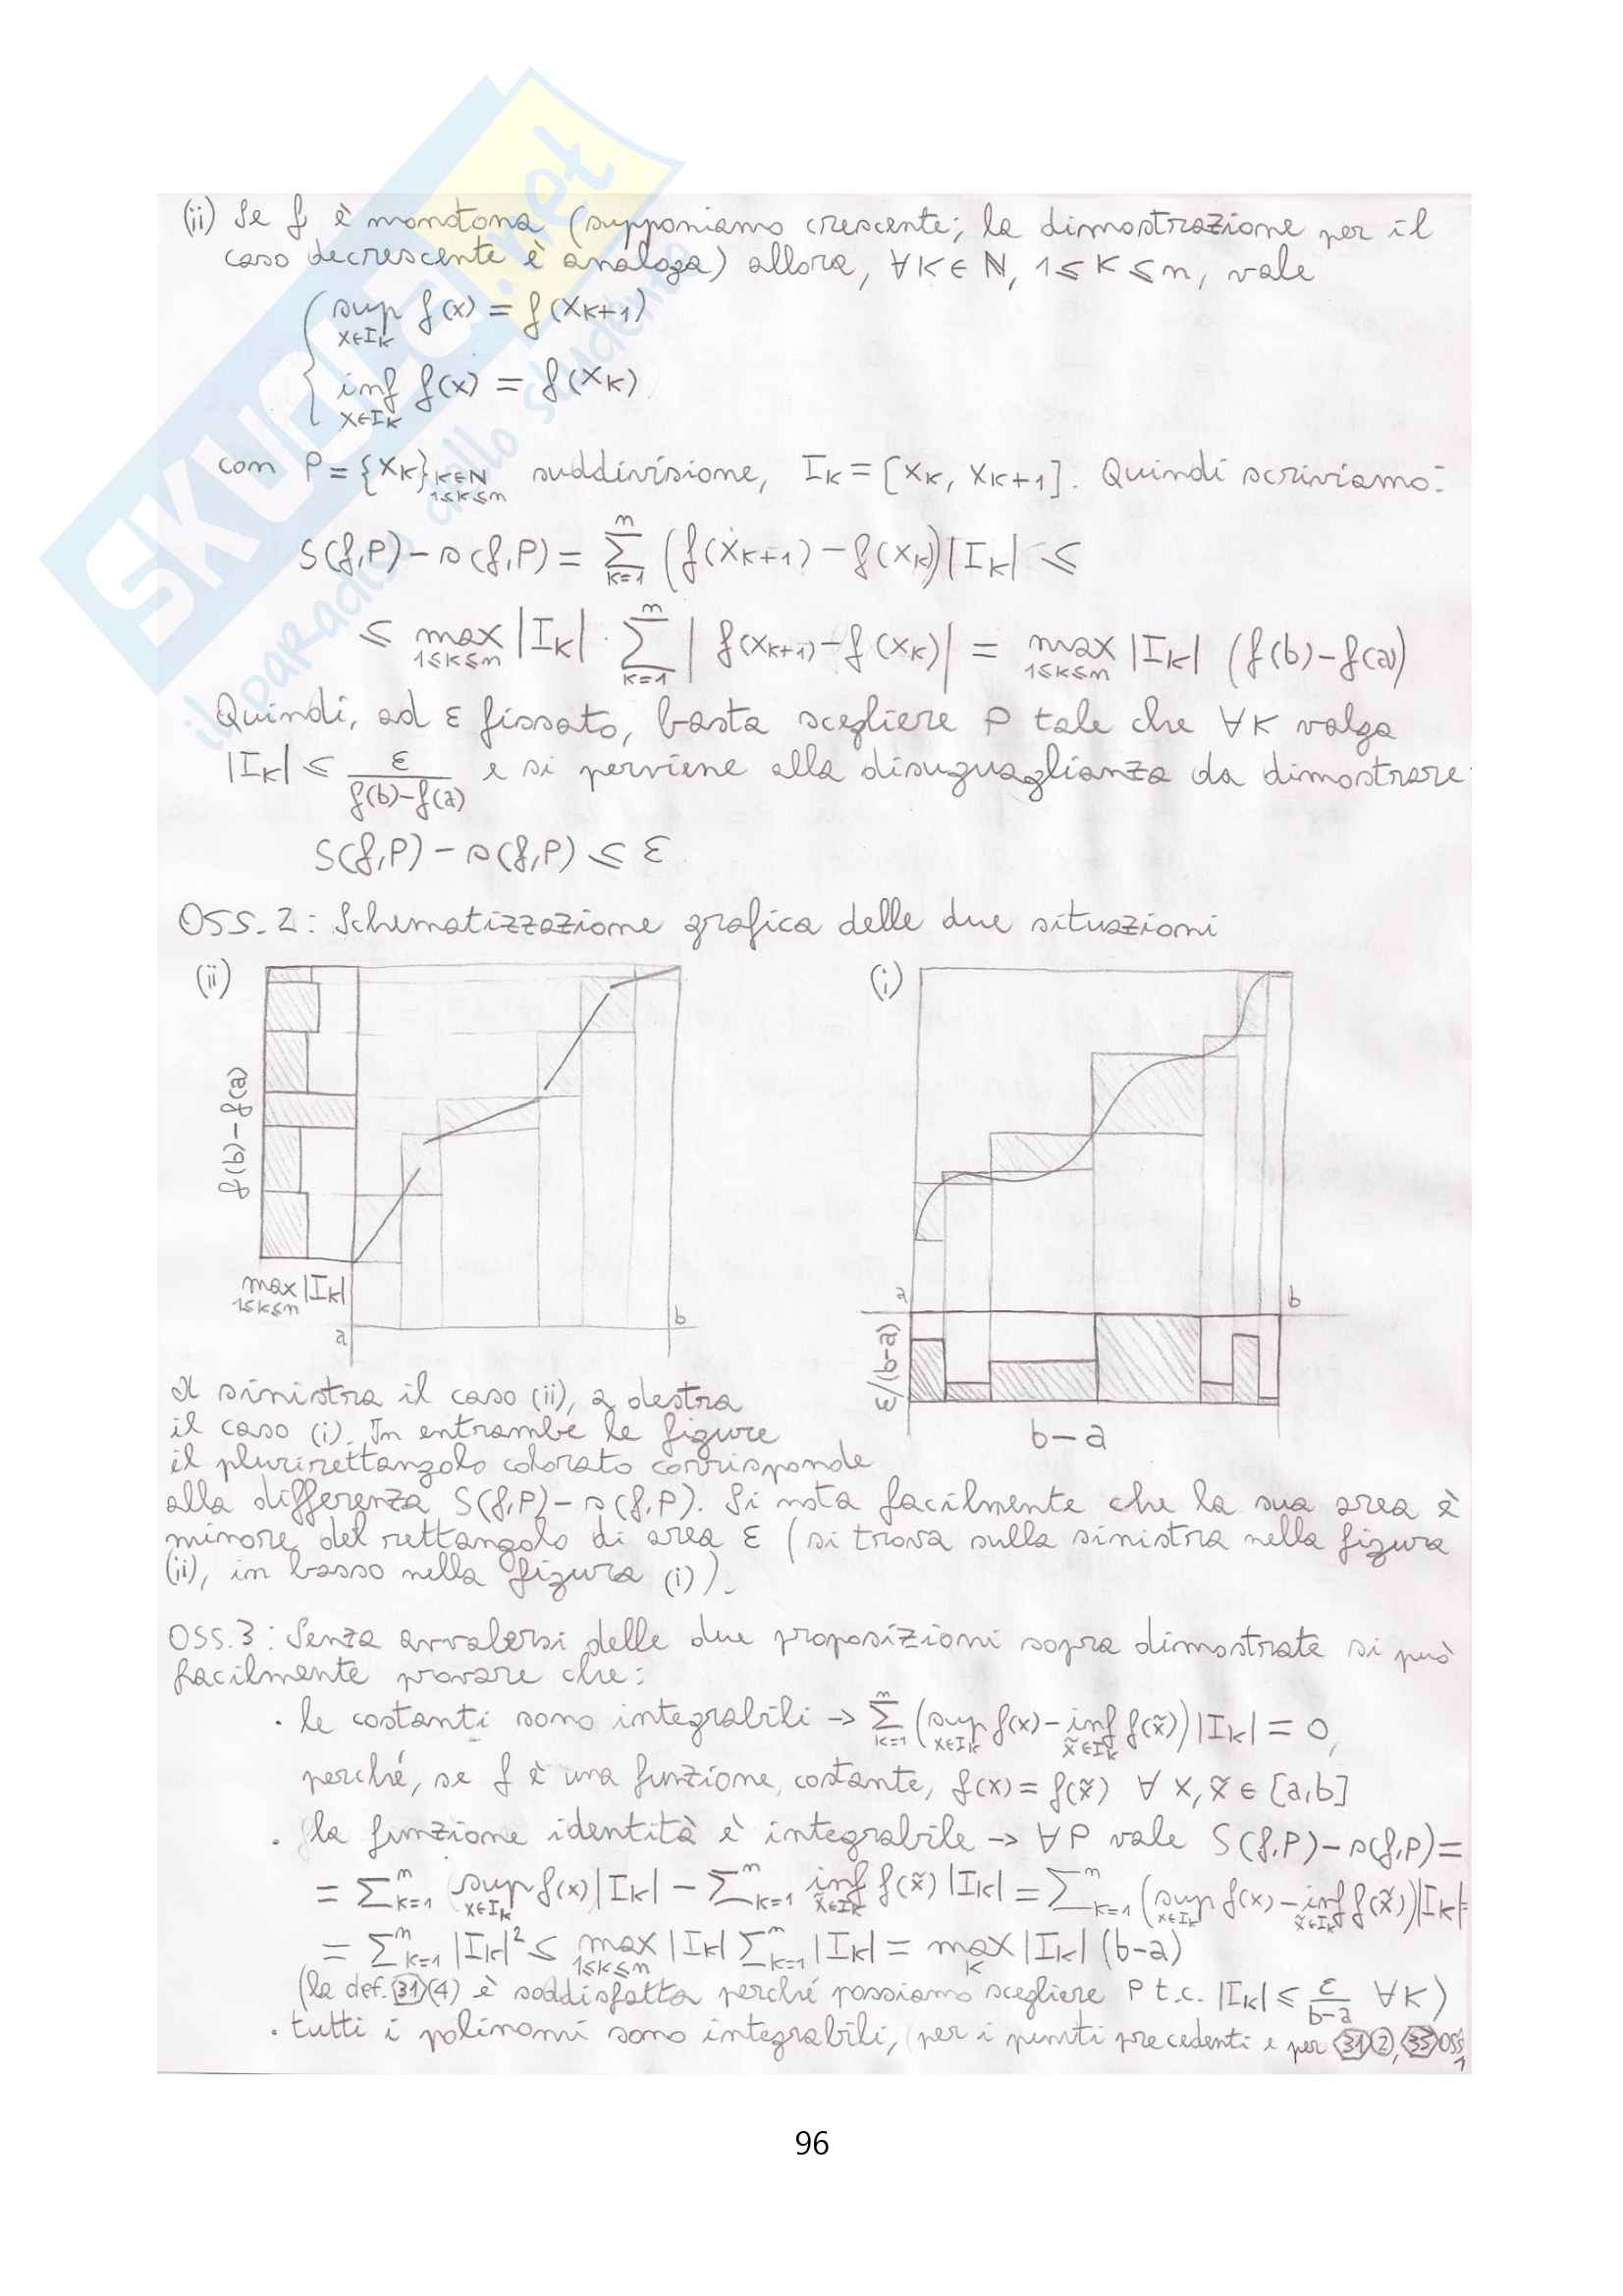 (ii) Se f è monotona (supponiamo crescente; la dimostrazione per il
caso decrescente è analoga) allora, ∀K∈ℕ, 1≤K≤n, vale
{ sup_{x∈I_K} f(x) = f(x_{K+1})
inf_{x∈I_K} f(x) = f(x_K)
con P = {x_K}_{K∈ℕ, 1≤K≤n} suddivisione, I_K = [x_K, x_{K+1}]. Quindi scriviamo:
S(f,P) - s(f,P) = ∑_{k=1}^{n} (f(x_{K+1}) - f(x_K)) |I_K| ≤
≤ max_{1≤K≤n} |I_K| · ∑_{k=1}^{n} |f(x_{K+1}) - f(x_K)| = max_{1≤K≤n} |I_K| (f(b) - f(a))
Quindi, ad ε fissato, basta scegliere P tale che ∀K valga
|I_K| ≤ ε/(f(b)-f(a)) e si perviene alla disuguaglianza da dimostrare
S(f,P) - s(f,P) ≤ ε
OSS. 2: Schematizzazione grafica delle due situazioni
(ii)
f(b) - f(a)
max_{1≤K≤n} |I_K|
a
b
(i)
a
b
ε/(b-a)
b-a
A sinistra il caso (ii), a destra
il caso (i). In entrambe le figure
il plurirettangolo colorato corrisponde
alla differenza S(f,P) - s(f,P). Si nota facilmente che la sua area è
minore del rettangolo di area ε (si trova sulla sinistra nella figura
(ii), in basso nella figura (i)).
OSS. 3: Senza avvalersi delle due proposizioni sopra dimostrate si può
facilmente provare che:
· le costanti sono integrabili → ∑_{k=1}^{n} (sup_{x∈I_K} f(x) - inf_{x̃∈I_K} f(x̃)) |I_K| = 0,
perché, se f è una funzione costante, f(x) = f(x̃) ∀ x, x̃ ∈ [a,b]
· la funzione identità è integrabile → ∀P vale S(f,P) - s(f,P) =
= ∑_{k=1}^{n} sup_{x∈I_K} f(x) |I_K| - ∑_{k=1}^{n} inf_{x̃∈I_K} f(x̃) |I_K| = ∑_{k=1}^{n} (sup_{x∈I_K} f(x) - inf_{x̃∈I_K} f(x̃)) |I_K| =
= ∑_{k=1}^{n} |I_K|² ≤ max_{1≤K≤n} |I_K| ∑_{k=1}^{n} |I_K| = max_K |I_K| (b-a)
(la def. 31 (4) è soddisfatta perché possiamo scegliere P t.c. |I_K| ≤ ε/(b-a) ∀K)
· tutti i polinomi sono integrabili, (per i punti precedenti e per 31 2, 33 OSS 1
96
SKUOLA.net
il paradiso dello studente